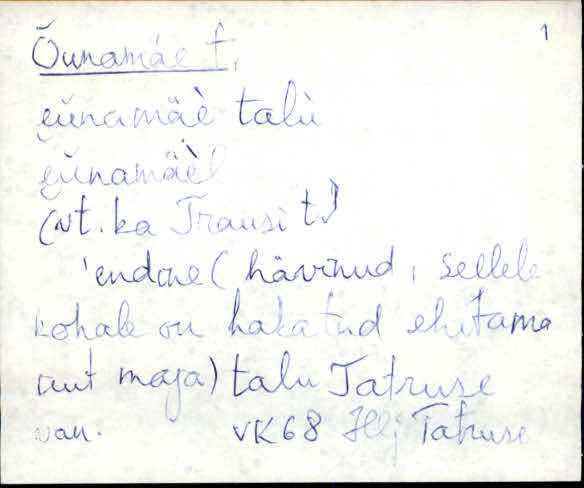 1
Õunamäe t.
e̮ŭnamäè talù
e̮ŭnamäè!
(vt. ka Transi t.)
'endine (hävinud, sellele
kohale on hakatud ehitama
uut maja) talu Tatruse
van. VK68 Tatruse